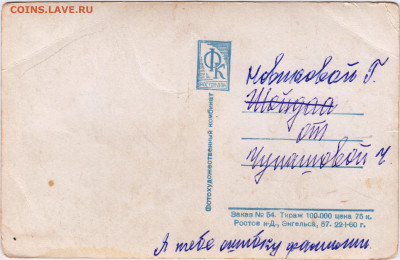 COINS.ЛАVE.RU
ФК
Фотохудожественный комбинат
Новиковой Г.
от
Чупашовой Ч.
Заказ № 54. Тираж 100.000 цена 75 к.
Ростов н-Д., Энгельса, 57- 22-I-60 г.
А тебе ошибку фамилии.